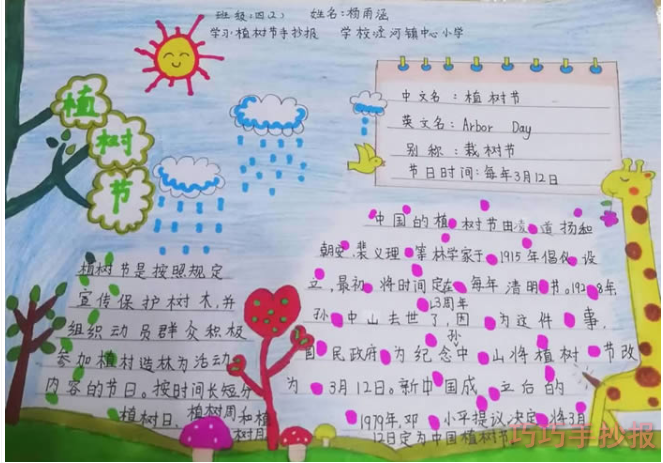 班级:四(2) 姓名:杨雨涵
学习·植树节手抄报 学校:泾河镇中心小学
植
树
节
中文名:植树节
英文名:Arbor Day
别称:栽树节
节日时间:每年3月12日
植树节是按照规定
宣传保护树木,并
组织动员群众积极
参加植村造林为活动
内容的节日。按时间长短分
植树日、植树周和植
树月
中国的植树节由凌道扬和
朝史、裴义理、等林学家于1915年倡伙设
立,最初将时间定在每年清明节。1928年,
孙中山去世了3周年,因为这件事,
国民政府为纪念孙中山将植树节改
为3月12日。新中国成立后的
1979年,邓小平提议决定将3月
12日定为中国植树节
巧巧手抄报